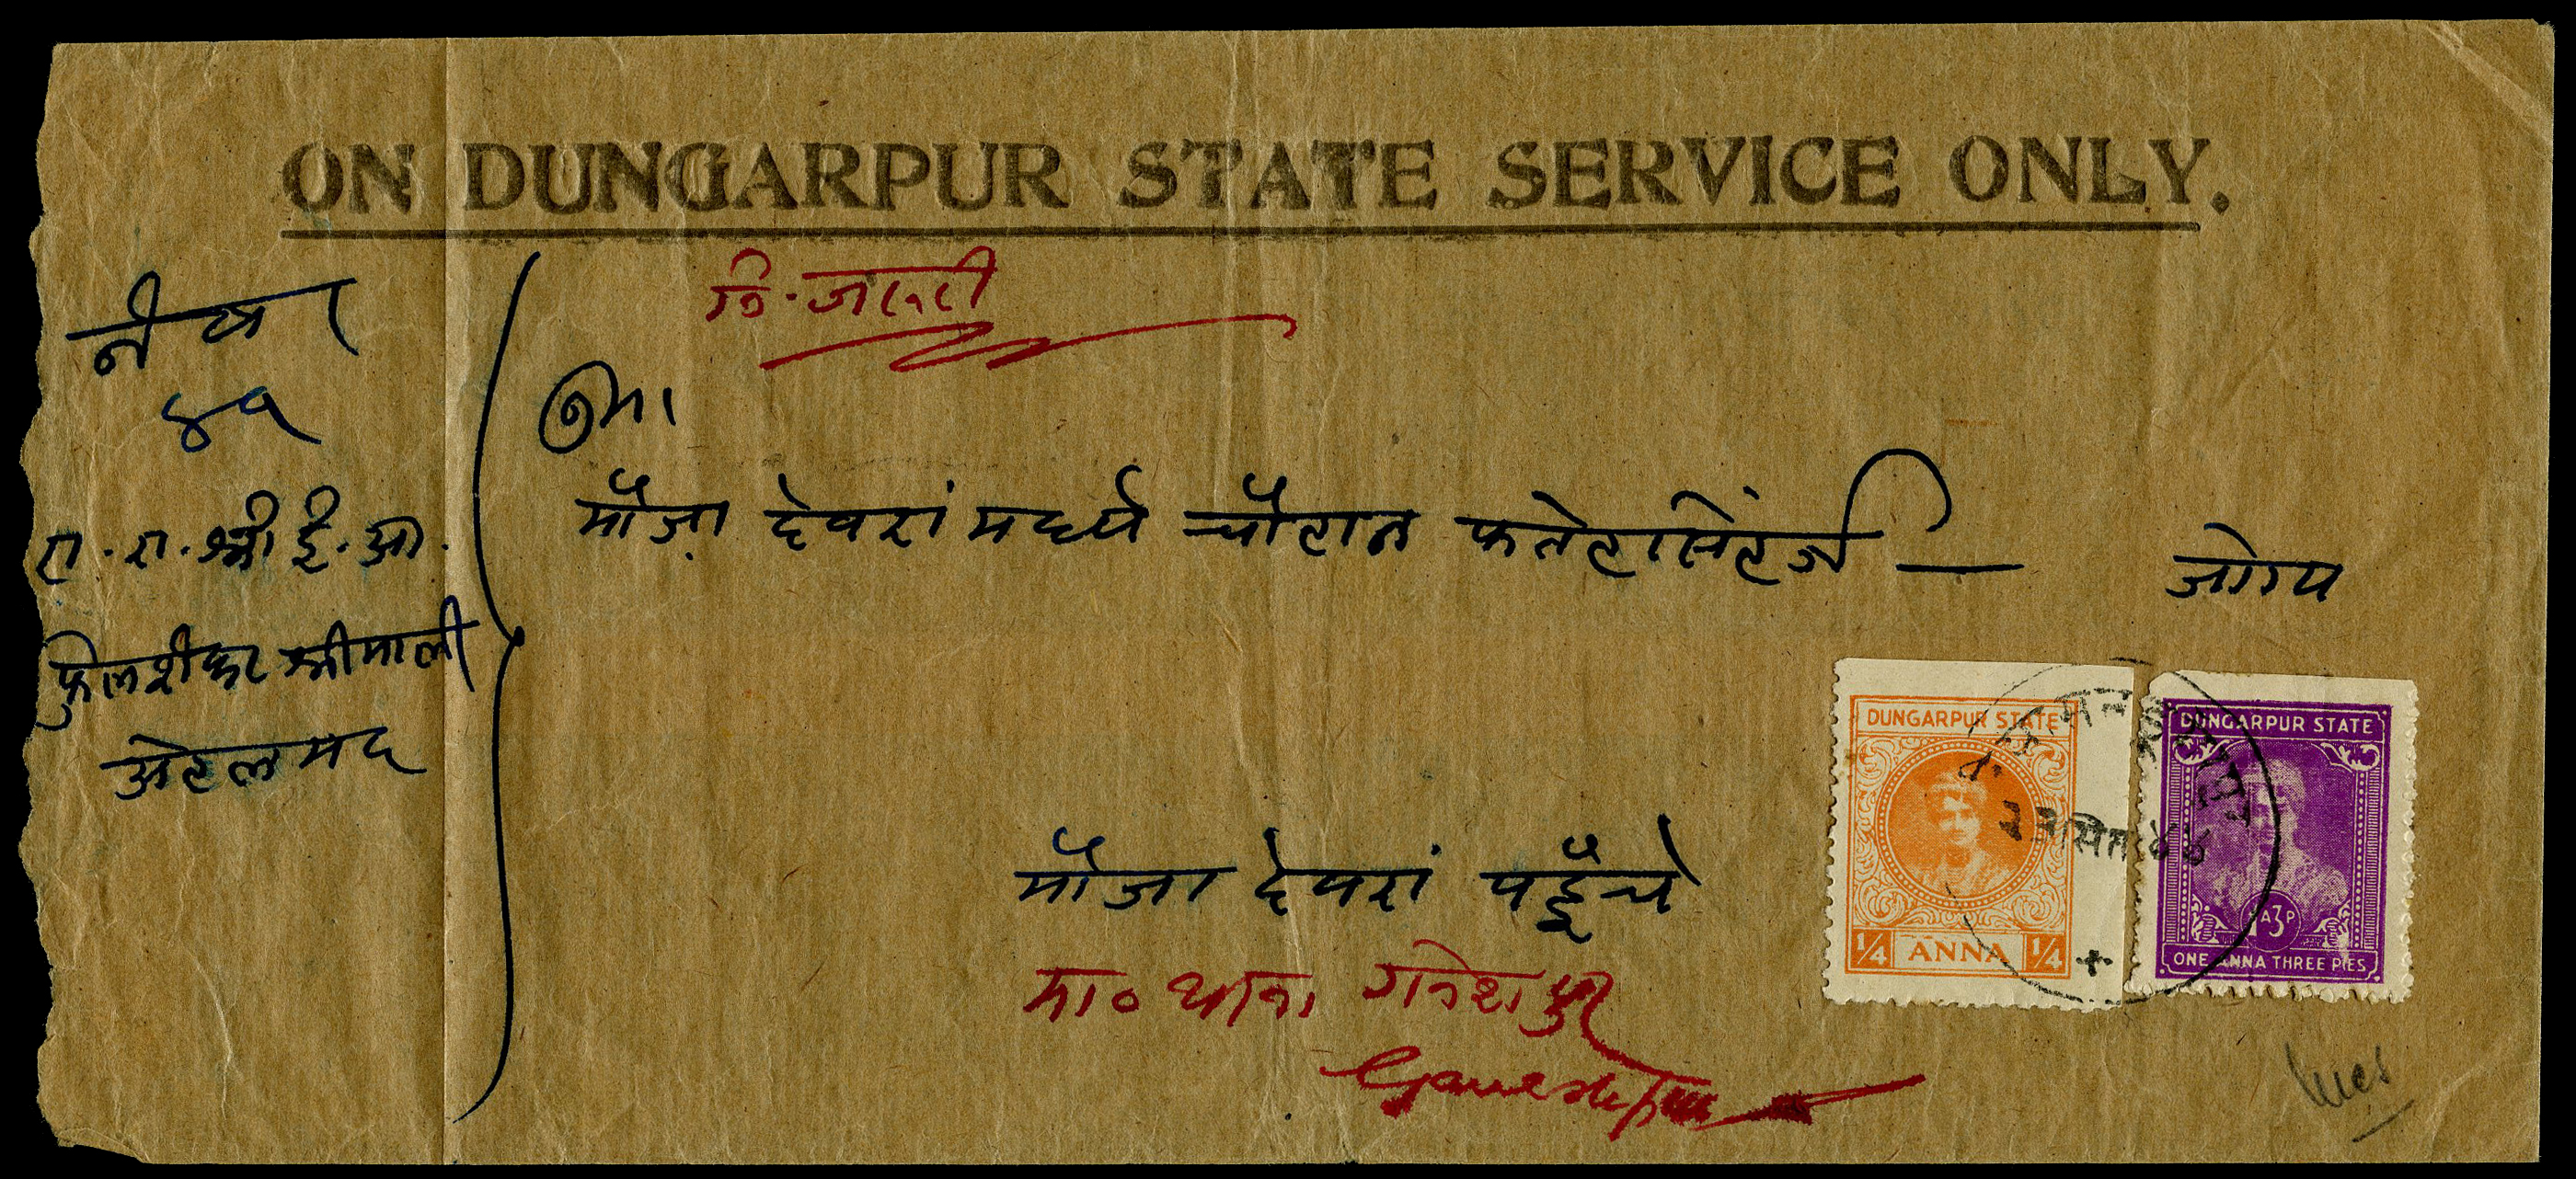 ON DUNGARPUR STATE SERVICE ONLY.
जरुरी
४१
रा. रा. श्री ई. ओ.
फुलशंकर श्रीमाली
अेहलमद
मौज़ा देवरां मध्ये चौहान फतेहसिंहजी — जोग्य
मौजा देवरां पहुँचे
मा० थाना गनेशपुर
Ganeshpur
DUNGARPUR STATE
1/4 ANNA 1/4
DUNGARPUR STATE
1A3P
ONE ANNA THREE PIES
२३ सित ४४